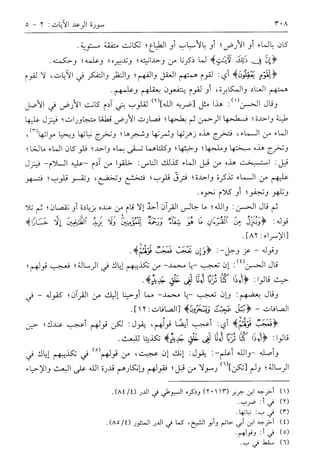 ٣٠٨ سورة الرعد الآيات: ٢ - ٥
كان بالماء أو الأرض؛ أو بالأسباب أو الطباع؛ لكانت متفقة مستوية.
﴿إِنَّ فِي ذَٰلِكَ لَآيَاتٍ﴾ لما ذكرنا من وحدانيته؛ وتدبيره؛ وعلمه؛ وحكمته.
﴿لِقَوْمٍ يَعْقِلُونَ﴾ أي: لقوم همتهم العقل والفهم؛ والنظر والتفكر في الآيات، لا لقوم
همتهم العناد والمكابرة، أو لقوم ينتفعون بعقلهم وعلمهم.
وقال الحسن(١): هذا مثل [ضربه الله](٢) لقلوب بني آدم كانت الأرض في الأصل
طينة واحدة؛ فسطحها الرحمن ثم بطحها؛ فصارت الأرض قطعًا متجاورات؛ فينزل عليها
الماء من السماء، فتخرج هذه زهرتها وثمرتها وشجرها؛ وتخرج نباتها ويحيا مواتها(٣)،
وتخرج هذه سبختها وملحها؛ وخبثها؛ وكلتاهما تسقى بماء واحد؛ فلو كان الماء مالحًا؛
قيل: استسبخت هذه من قبل الماء كذلك الناس: خلقوا من آدم -عليه السلام- فينزل
عليهم من السماء تذكرة واحدة؛ فترق قلوب؛ فتخشع وتخضع، وتقسو قلوب؛ فتسهو
وتلهو وتجفو؛ أو كلام نحوه.
ثم قال الحسن: والله؛ ما جالس القرآن أحدٌ إلا قام من عنده بزيادة أو نقصان؛ ثم تلا
قوله: ﴿وَنُنَزِّلُ مِنَ الْقُرْآنِ مَا هُوَ شِفَاءٌ وَرَحْمَةٌ لِلْمُؤْمِنِينَ وَلَا يَزِيدُ الظَّالِمِينَ إِلَّا خَسَارًا﴾
[الإسراء: ٨٢].
وقوله - عز وجل-: ﴿وَإِن تَعْجَبْ فَعَجَبٌ قَوْلُهُمْ﴾.
قال الحسن(٤): إن تعجب -يا محمد- من تكذيبهم إياك في الرسالة؛ فعجب قولهم؛
حيث قالوا: ﴿أَءِذَا كُنَّا تُرَابًا أَءِنَّا لَفِي خَلْقٍ جَدِيدٍ﴾.
وقال بعضهم: وإن تعجب -يا محمد- مما أوحينا إليك من القرآن؛ كقوله - في
الصافات - ﴿بَلْ عَجِبْتَ وَيَسْخَرُونَ﴾ [الصافات: ١٢].
﴿فَعَجَبٌ قَوْلُهُمْ﴾ أي: أعجب أيضًا قولهم، يقول: لكن قولهم أعجب عندك؛ حين
قالوا: ﴿أَءِذَا كُنَّا تُرَابًا أَءِنَّا لَفِي خَلْقٍ جَدِيدٍ﴾ تكذيبًا للبعث.
وأصله -والله أعلم-: يقول: إنك إن عجبت، من قولهم(٥) في تكذيبهم إياك في
الرسالة؛ ولم [تكن](٦) رسولا من قبل؛ فقولهم وإنكارهم قدرة الله على البعث والإحياء
(١) أخرجه ابن جرير (٢٠١١٣) وذكره السيوطي في الدر (٨٤/٤).
(٢) في أ: ضرب.
(٣) في ب: نباتها.
(٤) أخرجه ابن أبي حاتم وأبو الشيخ، كما في الدر المنثور (٨٥/٤).
(٥) في أ: وقولهم.
(٦) سقط في ب.